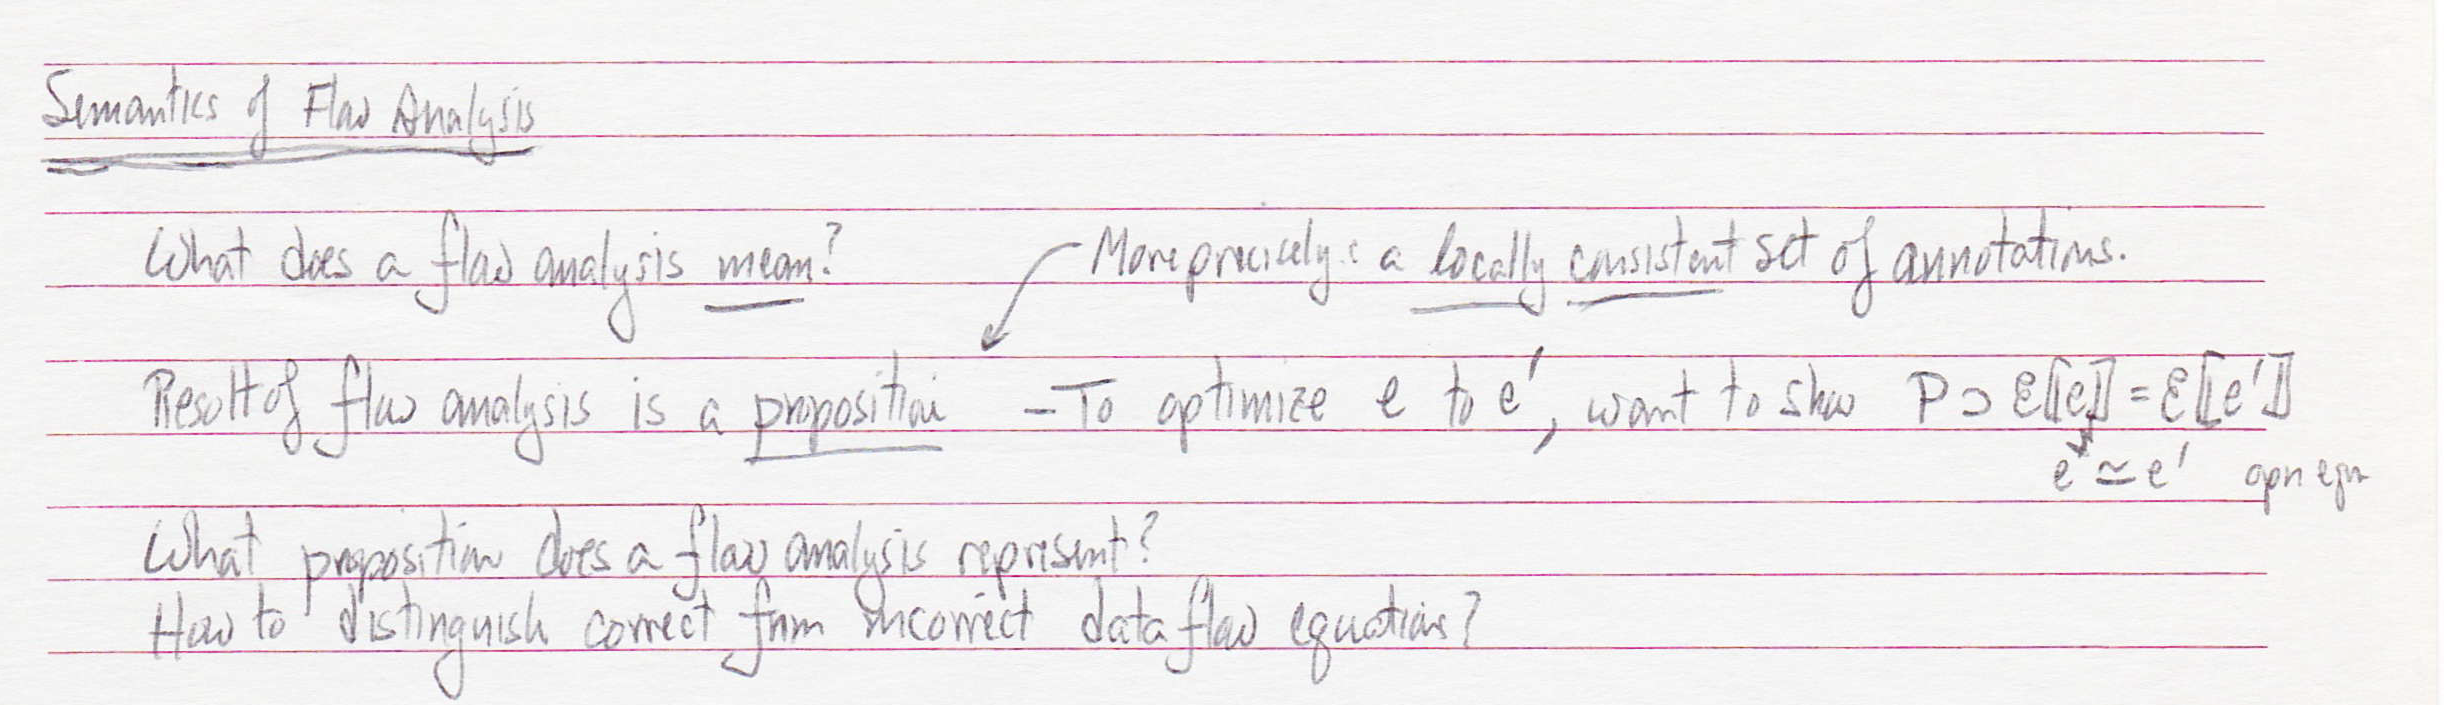 Semantics of Flow Analysis
What does a flow analysis mean?
More precisely: a locally consistent set of annotations.
Result of flow analysis is a proposition – To optimize e to e′, want to show P ⊃ ℰ⟦e⟧ = ℰ⟦e′⟧
e ≃ e′ opn eqn
What proposition does a flow analysis represent?
How to distinguish correct from incorrect data flow equations?